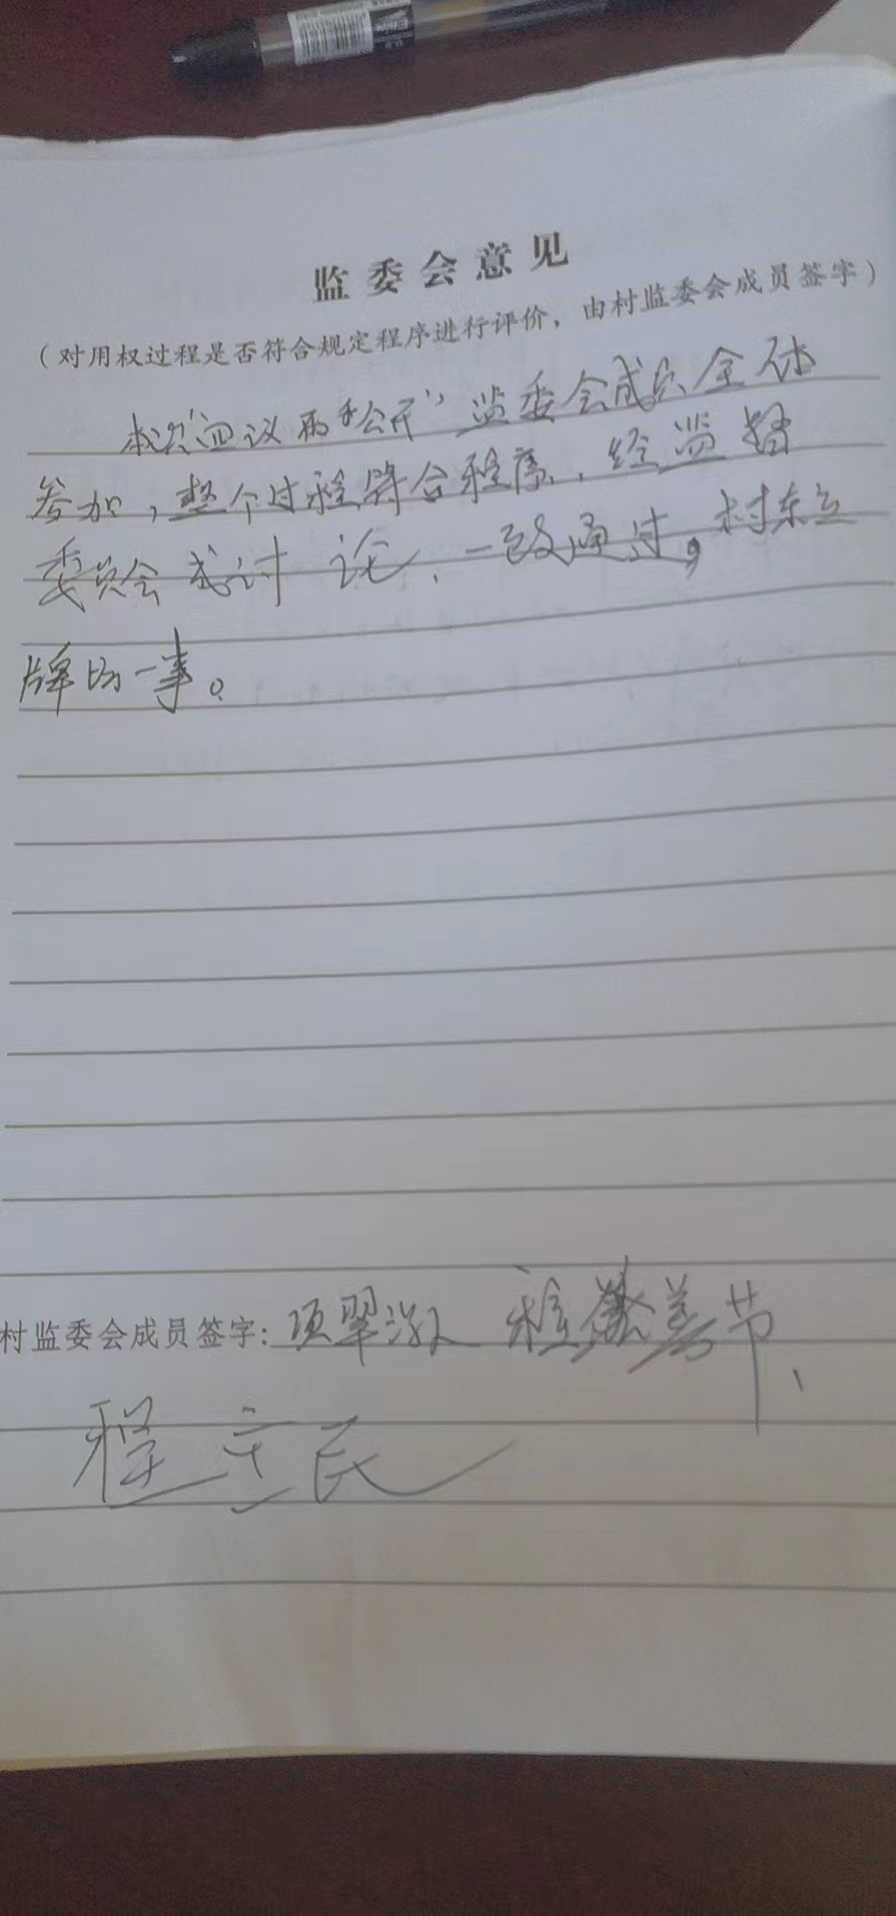 监委会意见
(对用权过程是否符合规定程序进行评价,由村监委会成员签字)
本次"四议两公开"监委会成员全体
参加,整个过程符合程序,经监督
委员会 讨论,一致通过,村东立
牌的一事。
村监委会成员签字:项翠 程 善节、
程立民